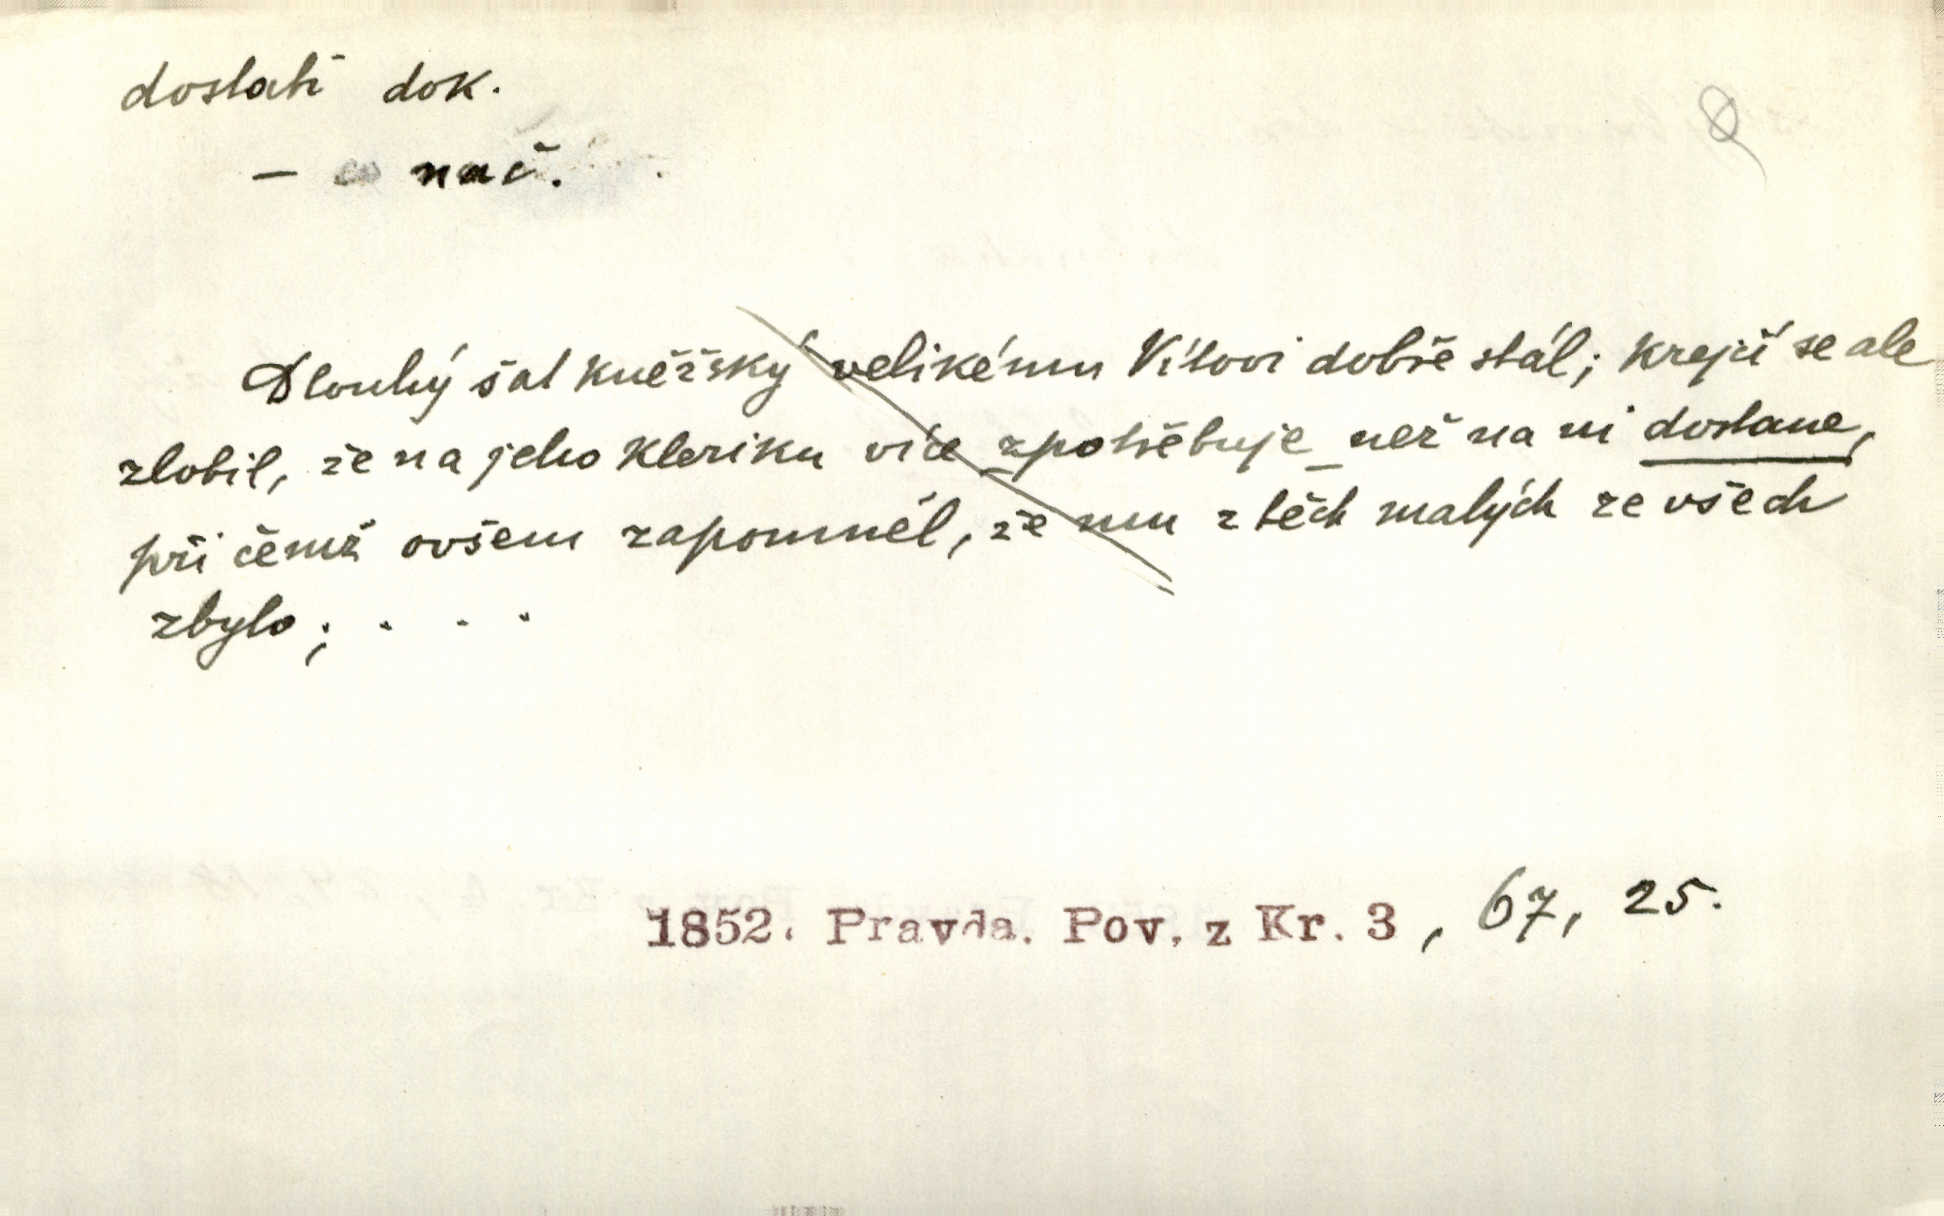 dostati dok.
— co nač.
Dlouhý šat kněžský velikému Vítovi dobře stál; krejčí se ale
zlobil, že na jeho kleriku více zpotřebuje než na ni dostane,
při čemž ovšem zapomněl, že mu z těch malých ze všech
zbylo; . . .
1852. Pravda. Pov. z Kr. 3, 67, 25.